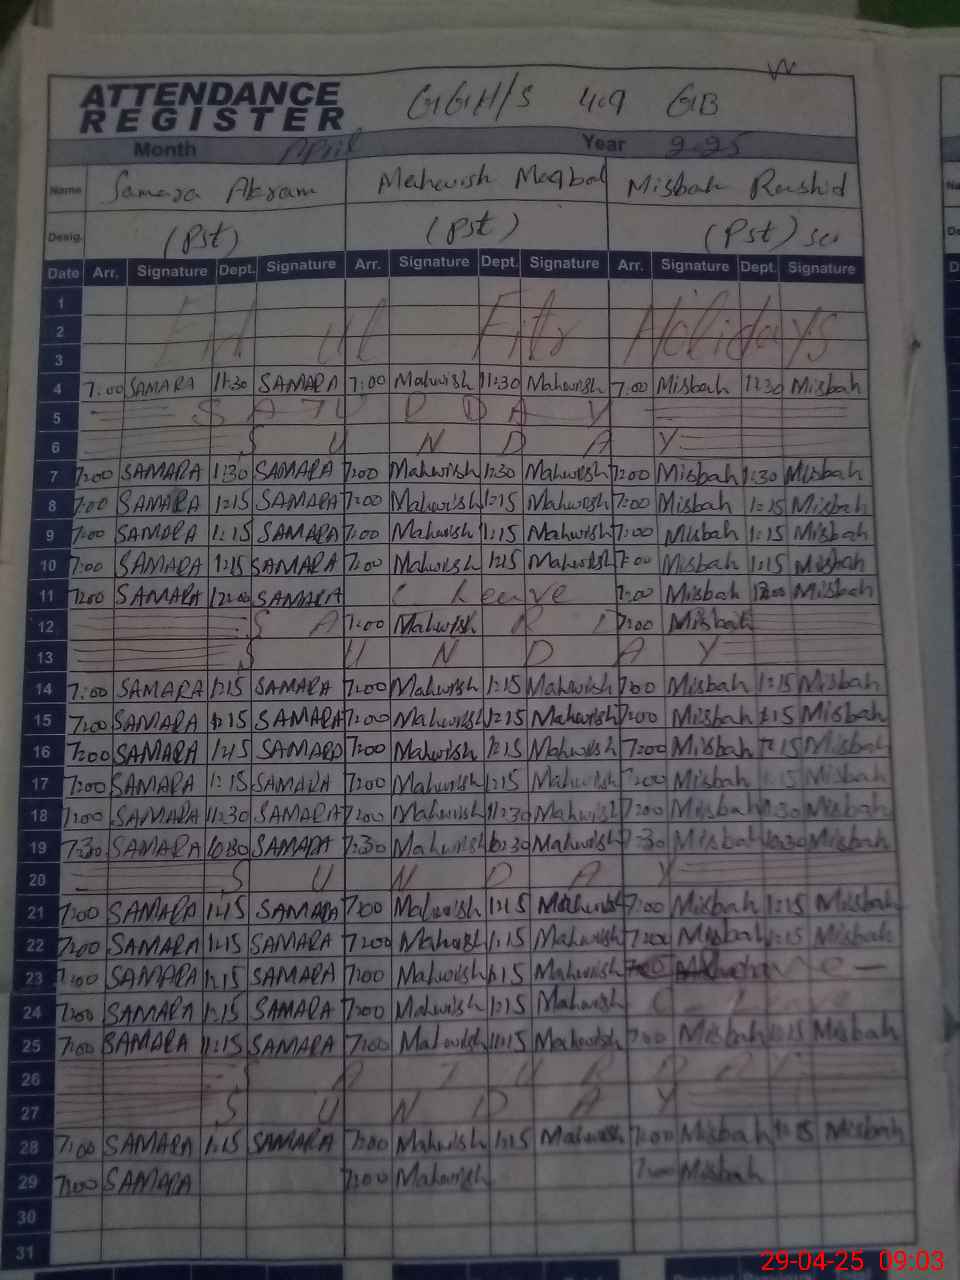 ATTENDANCE REGISTER GGH/S 409 GB
Month April Year 2025
Name Samara Akram Mahwish Maqbol Misbah Rashid
Desig. (Pst) (Pst) (Pst)
Date Arr. Signature Dept. Signature Arr. Signature Dept. Signature Arr. Signature Dept. Signature
1
2 Eid ul Fitr Holidays
3
4 7:00 SAMARA 11:30 SAMARA 7:00 Mahwish 11:30 Mahwish 7:00 Misbah 11:30 Misbah
5
6 S U N D A Y
7 7:00 SAMARA 1:30 SAMARA 7:00 Mahwish 1:30 Mahwish 7:00 Misbah 1:30 Misbah
8 7:00 SAMARA 1:15 SAMARA 7:00 Mahwish 1:15 Mahwish 7:00 Misbah 1:15 Misbah
9 7:00 SAMARA 1:15 SAMARA 7:00 Mahwish 1:15 Mahwish 7:00 Misbah 1:15 Misbah
10 7:00 SAMARA 1:15 SAMARA 7:00 Mahwish 1:15 Mahwish 7:00 Misbah 1:15 Misbah
11 7:00 SAMARA 12:00 SAMARA C Leave 7:00 Misbah 12:00 Misbah
12 S A 7:00 Mahwish R D 7:00 Misbah
13 S U N D A Y
14 7:00 SAMARA 1:15 SAMARA 7:00 Mahwish 1:15 Mahwish 7:00 Misbah 1:15 Misbah
15 7:00 SAMARA 1:15 SAMARA 7:00 Mahwish 1:15 Mahwish 7:00 Misbah 1:15 Misbah
16 7:00 SAMARA 1:15 SAMARA 7:00 Mahwish 1:15 Mahwish 7:00 Misbah 1:15 Misbah
17 7:00 SAMARA 1:15 SAMARA 7:00 Mahwish 1:15 Mahwish 7:00 Misbah 1:15 Misbah
18 7:00 SAMARA 11:30 SAMARA 7:00 Mahwish 11:30 Mahwish 7:00 Misbah 11:30 Misbah
19 7:30 SAMARA 10:30 SAMARA 7:30 Mahwish 10:30 Mahwish 7:30 Misbah 10:30 Misbah
20 S U N D A Y
21 7:00 SAMARA 1:15 SAMARA 7:00 Mahwish 1:15 Mahwish 7:00 Misbah 1:15 Misbah
22 7:00 SAMARA 1:15 SAMARA 7:00 Mahwish 1:15 Mahwish 7:00 Misbah 1:15 Misbah
23 7:00 SAMARA 1:15 SAMARA 7:00 Mahwish 1:15 Mahwish
24 7:00 SAMARA 1:15 SAMARA 7:00 Mahwish 1:15 Mahwish C Leave
25 7:00 SAMARA 11:15 SAMARA 7:00 Mahwish 11:15 Mahwish 7:00 Misbah 11:15 Misbah
26 S A T U R D A Y
27 S U N D A Y
28 7:00 SAMARA 1:15 SAMARA 7:00 Mahwish 1:15 Mahwish 7:00 Misbah 1:15 Misbah
29 7:00 SAMARA 7:00 Mahwish 7:00 Misbah
30
31
29-04-25 09:03